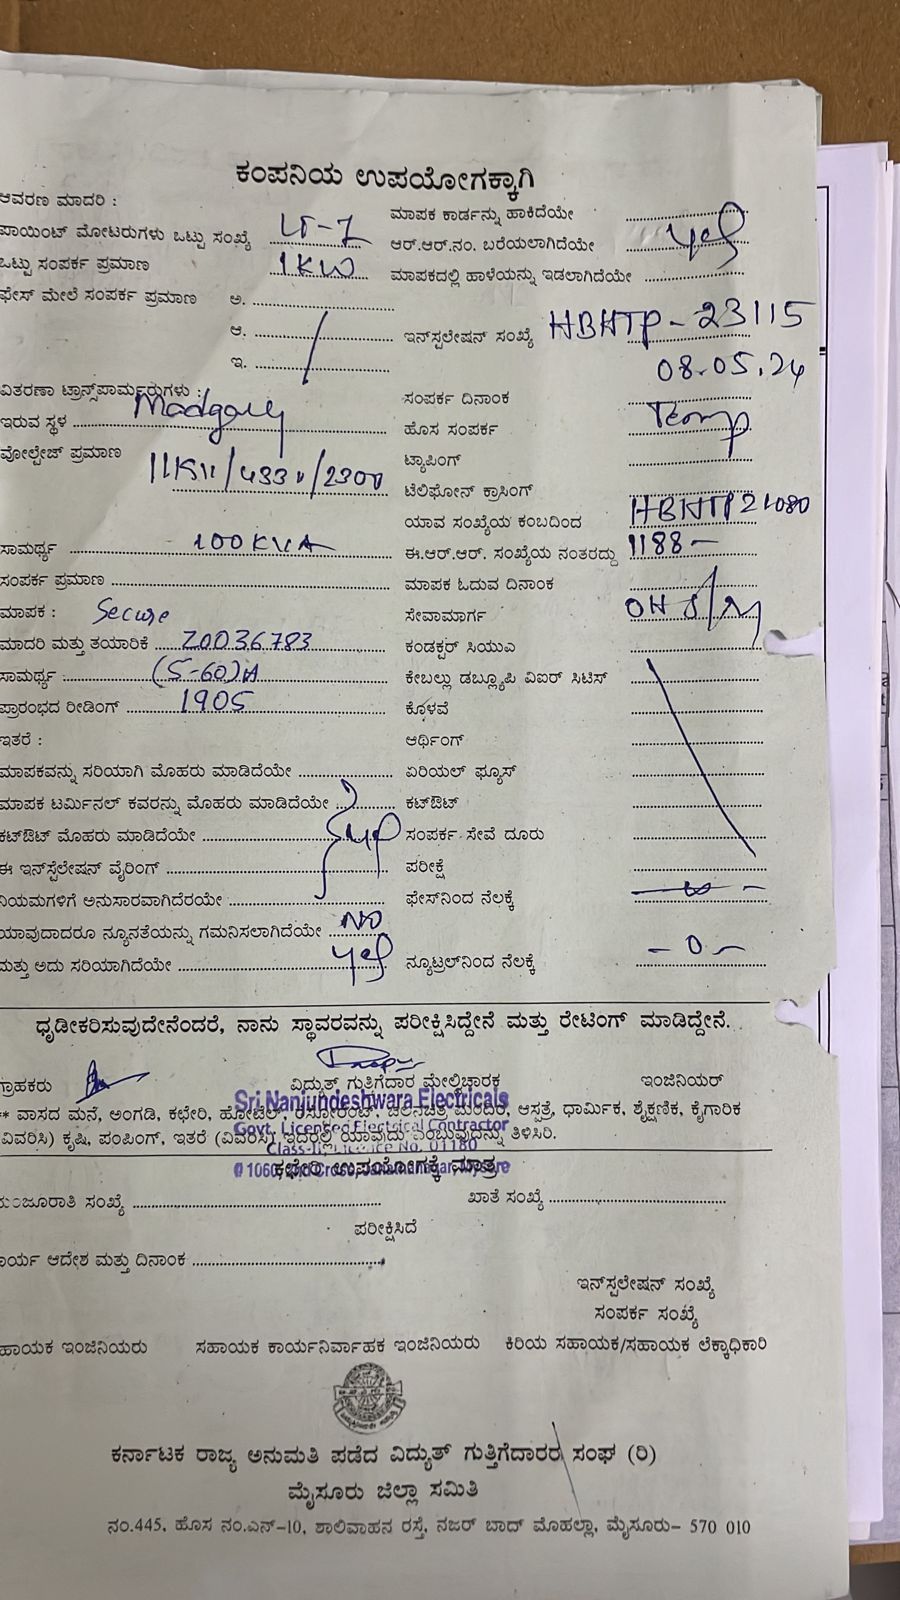 ಕಂಪನಿಯ ಉಪಯೋಗಕ್ಕಾಗಿ
ಆವರಣ ಮಾದರಿ :
ಪಾಯಿಂಟ್ ಮೋಟರುಗಳು ಒಟ್ಟು ಸಂಖ್ಯೆ LT-7
ಒಟ್ಟು ಸಂಪರ್ಕ ಪ್ರಮಾಣ 1KW
ಫೇಸ್ ಮೇಲೆ ಸಂಪರ್ಕ ಪ್ರಮಾಣ ಅ.
ಆ.
ಇ.
ವಿತರಣಾ ಟ್ರಾನ್ಸ್‌ಪಾರ್ಮರುಗಳು :
ಇರುವ ಸ್ಥಳ
ವೋಲ್ಟೇಜ್ ಪ್ರಮಾಣ
ಸಾಮರ್ಥ್ಯ 100KVA
ಸಂಪರ್ಕ ಪ್ರಮಾಣ
ಮಾಪಕ : Secure
ಮಾದರಿ ಮತ್ತು ತಯಾರಿಕೆ Z0036783
ಸಾಮರ್ಥ್ಯ : (5-60)A
ಪ್ರಾರಂಭದ ರೀಡಿಂಗ್ 1905
ಇತರೆ :
ಮಾಪಕವನ್ನು ಸರಿಯಾಗಿ ಮೊಹರು ಮಾಡಿದೆಯೇ
ಮಾಪಕ ಟರ್ಮಿನಲ್ ಕವರನ್ನು ಮೊಹರು ಮಾಡಿದೆಯೇ
ಕಟ್‌ಔಟ್ ಮೊಹರು ಮಾಡಿದೆಯೇ yes
ಈ ಇನ್‌ಸ್ಟೆಲೇಷನ್ ವೈರಿಂಗ್
ನಿಯಮಗಳಿಗೆ ಅನುಸಾರವಾಗಿದೆರಯೇ
ಯಾವುದಾದರೂ ನ್ಯೂನತೆಯನ್ನು ಗಮನಿಸಲಾಗಿದೆಯೇ NO
ಮತ್ತು ಅದು ಸರಿಯಾಗಿದೆಯೇ yes
ಮಾಪಕ ಕಾರ್ಡನ್ನು ಹಾಕಿದೆಯೇ
ಆರ್.ಆರ್.ನಂ. ಬರೆಯಲಾಗಿದೆಯೇ yes
ಮಾಪಕದಲ್ಲಿ ಹಾಳೆಯನ್ನು ಇಡಲಾಗಿದೆಯೇ
ಇನ್‌ಸ್ಟಲೇಷನ್ ಸಂಖ್ಯೆ HBHTP-23115
08.05.24
ಸಂಪರ್ಕ ದಿನಾಂಕ
ಹೊಸ ಸಂಪರ್ಕ Temp
ಟ್ಯಾಪಿಂಗ್
ಟೆಲಿಫೋನ್ ಕ್ರಾಸಿಂಗ್
ಯಾವ ಸಂಖ್ಯೆಯ ಕಂಬದಿಂದ HBHTP21080
ಈ.ಆರ್.ಆರ್. ಸಂಖ್ಯೆಯ ನಂತರದ್ದು 1188-
ಮಾಪಕ ಓದುವ ದಿನಾಂಕ
ಸೇವಾಮಾರ್ಗ OH
ಕಂಡಕ್ಟರ್ ಸಿಯುಎ
ಕೇಬಲ್ಲು ಡಬ್ಲ್ಯೂಪಿ ವಿಐರ್ ಸಿಟಿಸ್
ಕೊಳವೆ
ಆರ್ಥಿಂಗ್
ಏರಿಯಲ್ ಫ್ಯೂಸ್
ಕಟ್‌ಔಟ್
ಸಂಪರ್ಕ ಸೇವೆ ದೂರು
ಪರೀಕ್ಷೆ
ಫೇಸ್‌ನಿಂದ ನೆಲಕ್ಕೆ
ನ್ಯೂಟ್ರಲ್‌ನಿಂದ ನೆಲಕ್ಕೆ -0-
ಧೃಡೀಕರಿಸುವುದೇನೆಂದರೆ, ನಾನು ಸ್ಥಾವರವನ್ನು ಪರೀಕ್ಷಿಸಿದ್ದೇನೆ ಮತ್ತು ರೇಟಿಂಗ್ ಮಾಡಿದ್ದೇನೆ.
ಗ್ರಾಹಕರು ವಿದ್ಯುತ್ ಗುತ್ತಿಗೆದಾರ ಮೇಲ್ವಿಚಾರಕ ಇಂಜಿನಿಯರ್
Sri Nanjundeshwara Electricals
** ವಾಸದ ಮನೆ, ಅಂಗಡಿ, ಕಛೇರಿ, ಹೋಟೆಲ್, ರೆಸ್ಟೋರೆಂಟ್, ಚಲನಚಿತ್ರ ಮಂದಿರ, ಆಸ್ಪತ್ರೆ, ಧಾರ್ಮಿಕ, ಶೈಕ್ಷಣಿಕ, ಕೈಗಾರಿಕ
Govt. Licensed Electrical Contractor
(ವಿವರಿಸಿ) ಕೃಷಿ, ಪಂಪಿಂಗ್, ಇತರೆ (ವಿವರಿಸಿ) ಇದರಲ್ಲಿ ಯಾವುದು ಎಂಬುವುದನ್ನು ತಿಳಿಸಿರಿ.
No. 01180
ಕಛೇರಿ ಉಪಯೋಗಕ್ಕೆ ಮಾತ್ರ
ಮಂಜೂರಾತಿ ಸಂಖ್ಯೆ ಖಾತೆ ಸಂಖ್ಯೆ
ಪರೀಕ್ಷಿಸಿದೆ
ಆದೇಶ ಮತ್ತು ದಿನಾಂಕ
ಇನ್‌ಸ್ಟಲೇಷನ್ ಸಂಖ್ಯೆ
ಸಂಪರ್ಕ ಸಂಖ್ಯೆ
ಇಂಜಿನಿಯರು ಸಹಾಯಕ ಕಾರ್ಯನಿರ್ವಾಹಕ ಇಂಜಿನಿಯರು ಕಿರಿಯ ಸಹಾಯಕ/ಸಹಾಯಕ ಲೆಕ್ಕಾಧಿಕಾರಿ
ಕರ್ನಾಟಕ ರಾಜ್ಯ ಅನುಮತಿ ಪಡೆದ ವಿದ್ಯುತ್ ಗುತ್ತಿಗೆದಾರರ ಸಂಘ (ರಿ)
ಮೈಸೂರು ಜಿಲ್ಲಾ ಸಮಿತಿ
ನಂ.445, ಹೊಸ ನಂ.ಎನ್-10, ಶಾಲಿವಾಹನ ರಸ್ತೆ, ನಜರ್ ಬಾದ್ ಮೊಹಲ್ಲಾ, ಮೈಸೂರು- 570 010